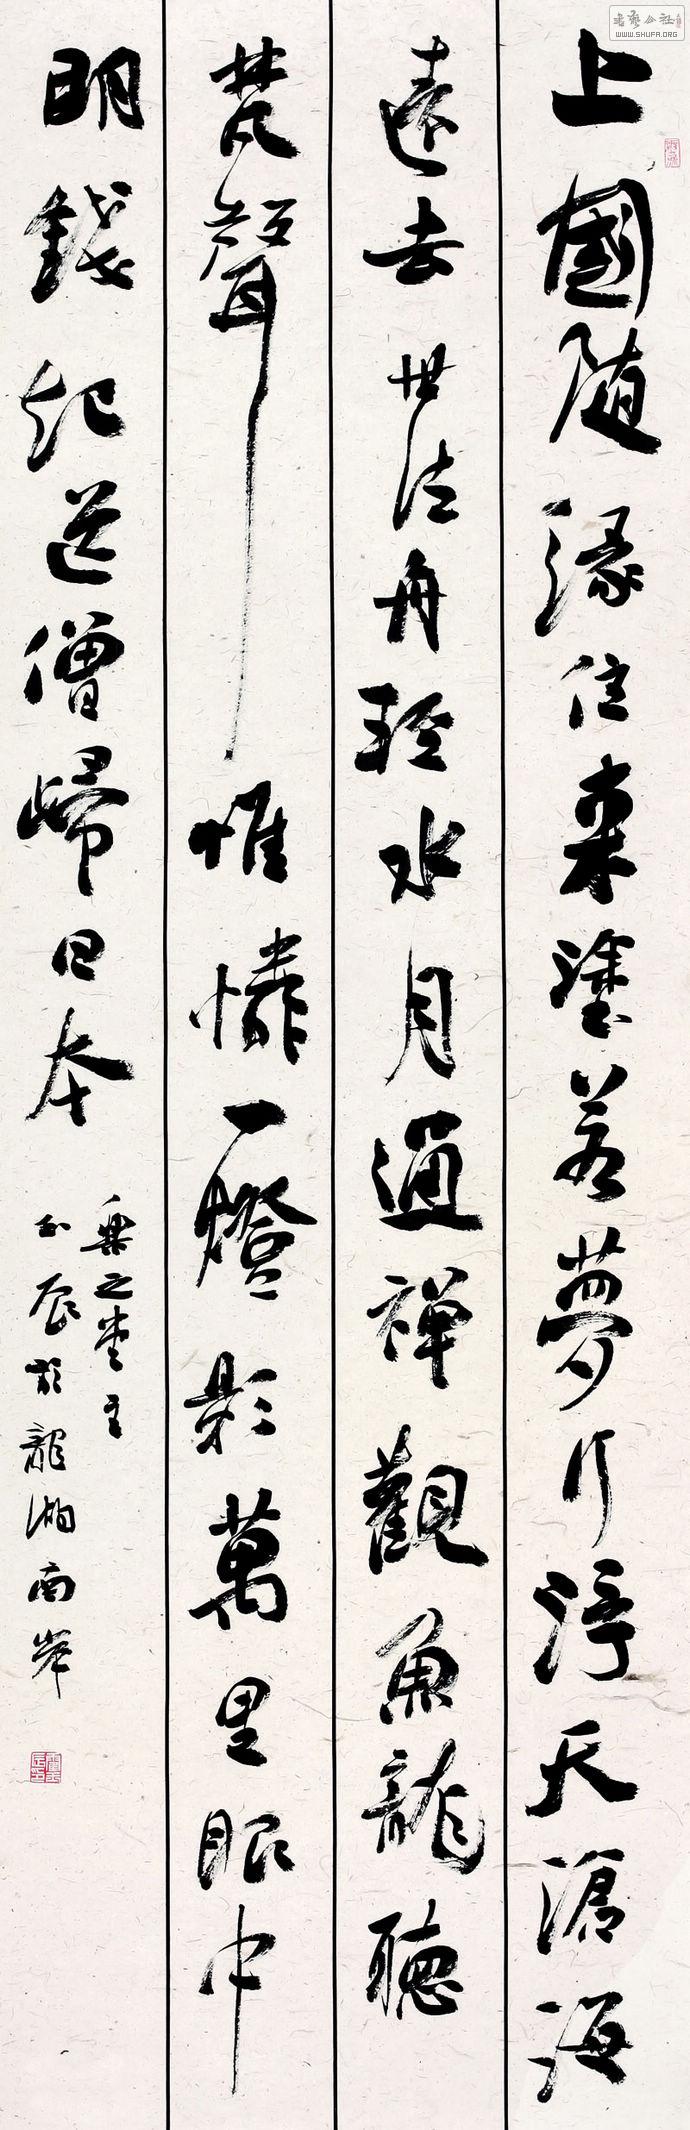 上國隨緣住來塗若夢行浮天滄海
遠去世法舟輕水月通禪觀魚龍聽
梵聲惟憐一燈影萬里眼中
明錢起送僧歸日本
樂之堂主
於龍湖南岸
WWW.SHUFA.ORG